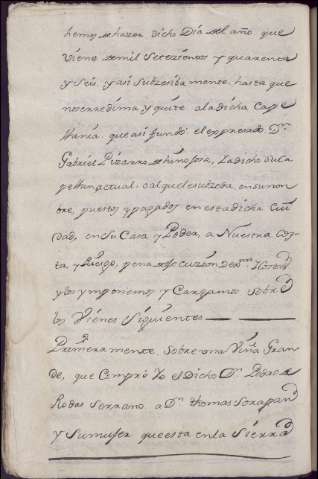 hemos de hazer dicho Dia del año que
viene de mil setezientos y quarenta
y Seis, y asi subzesibamente, hasta que
nos er redima y quite a la dicha Cape
llania, que asi fundó el expresado Dn.
Gabriel Pizarro de hinojosa, la dicho su Ca
pellan actual, o al que subzeda, en su nom
bre, puestos y pagados en esta dicha Ciu
dad, en su Casa y Poder, a Nuestra Cos
ta y Riesgo, pena de
y los ymponemos y Cargamos Sobre
los Vienes Siguientes
Primeramente, Sobre una Viña Gran
de, que Compré Yo el Dicho Dn.
Rodas Serrano a Dn. thomas Sorapan
y Su muger que esta en la Sierra